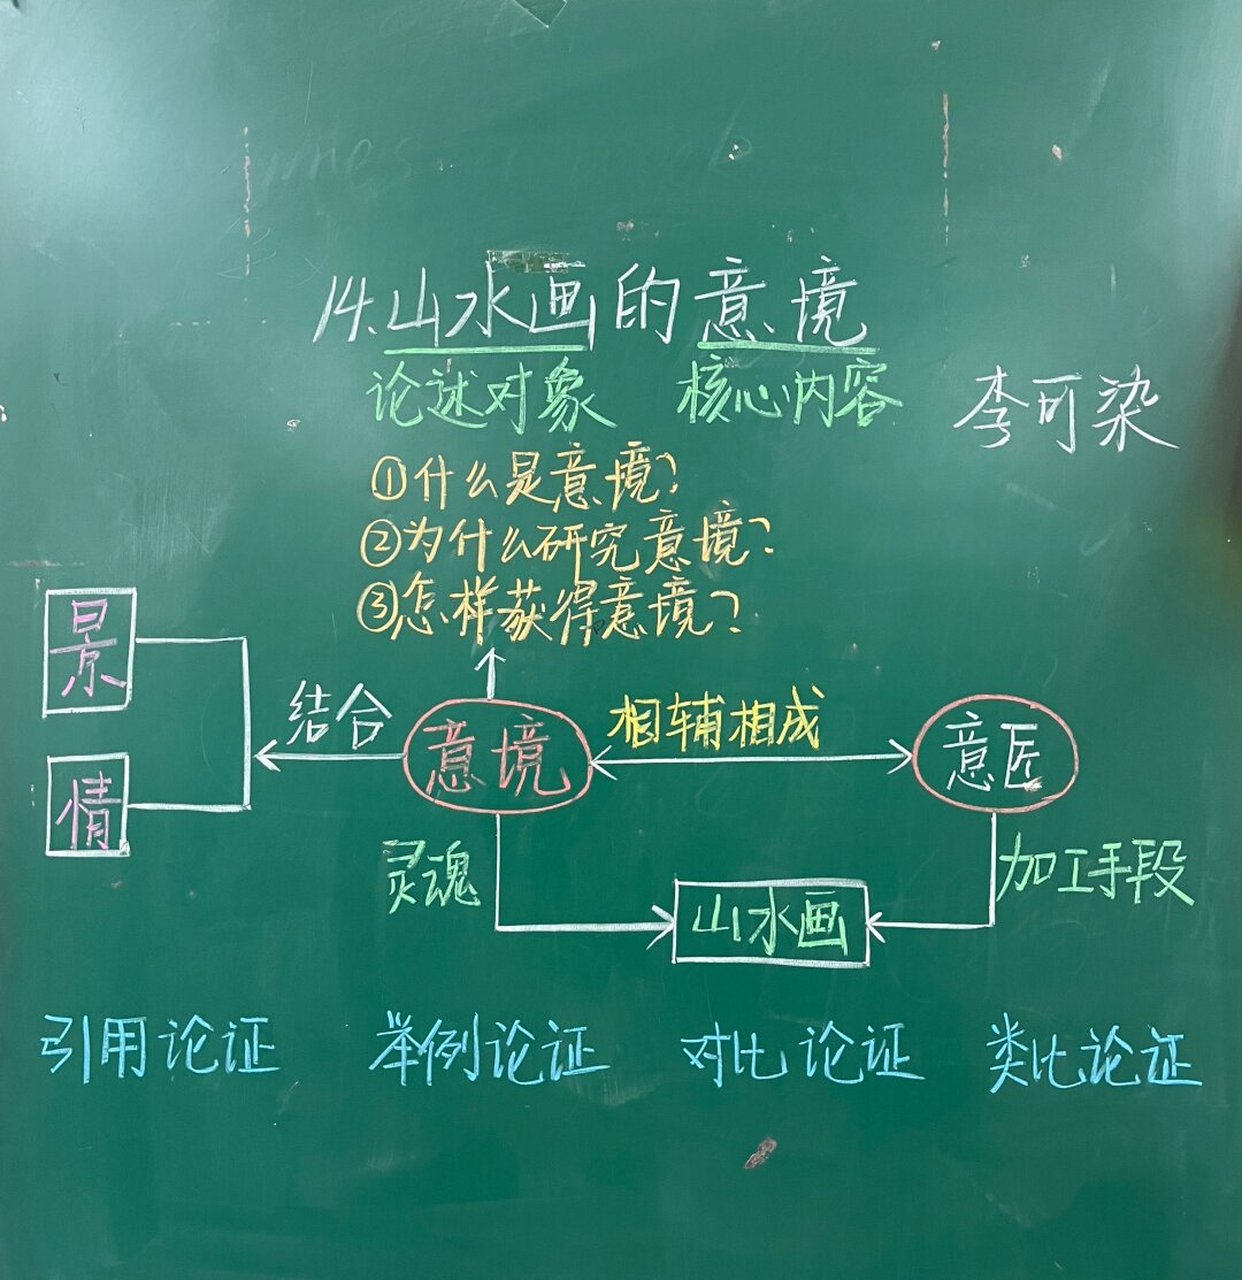 14.山水画的意境
论述对象 核心内容
李可染
①什么是意境?
②为什么研究意境?
③怎样获得意境?
景
情
结合
意境
相辅相成
意匠
灵魂
加工手段
山水画
引用论证 举例论证 对比论证 类比论证